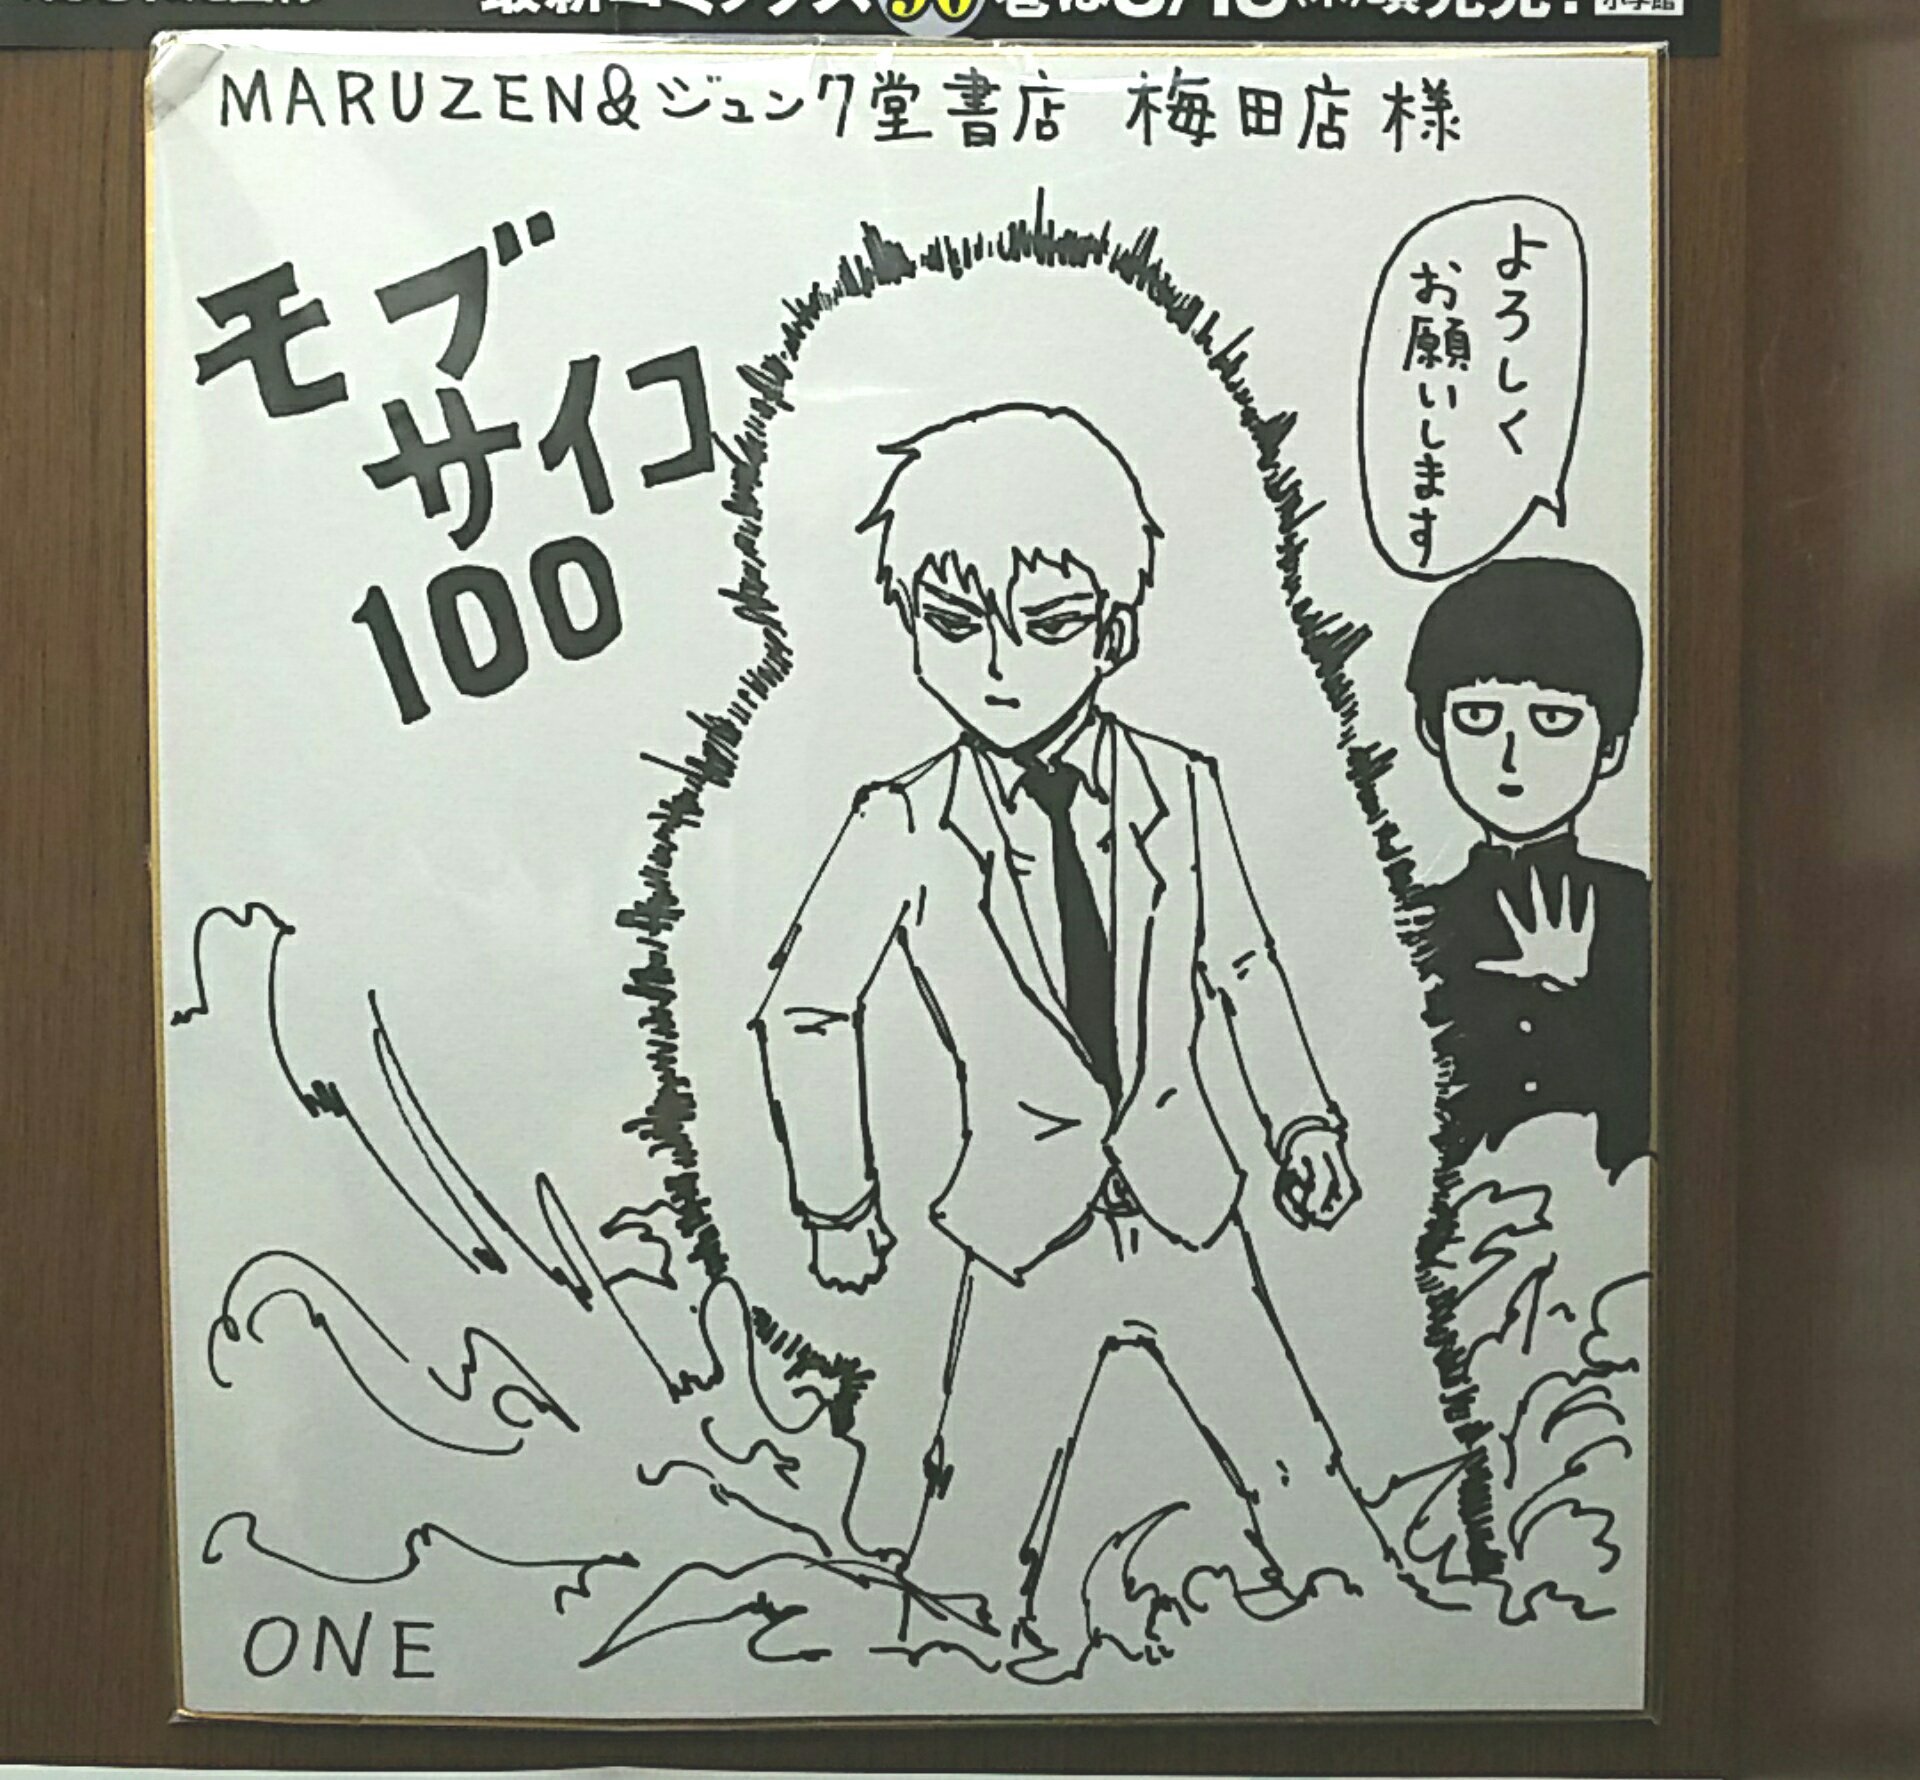 最新コミックス
MARUZEN&ジュンク堂書店 梅田店 様
モブ
サイコ
100
よろしく
お願いします
ONE